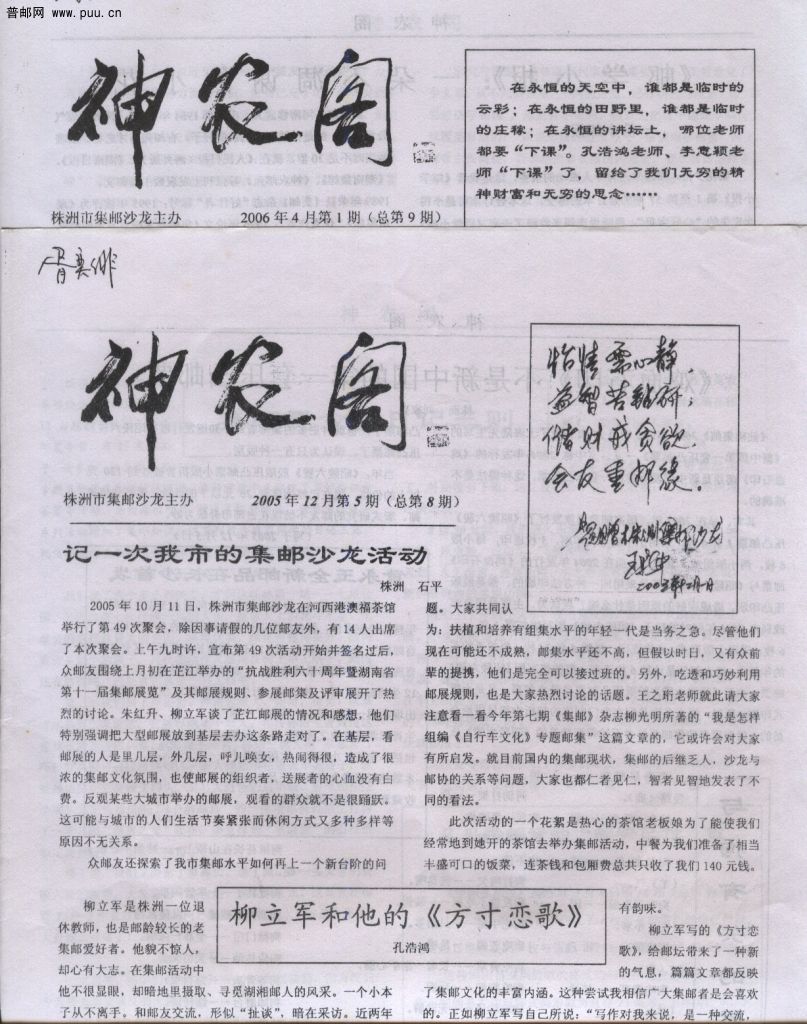 普邮网
www.puu.cn
神农阁
在永恒的天空中，谁都是临时的
云彩；在永恒的田野里，谁都是临时
的庄稼；在永恒的讲坛上，哪位老师
都要“下课”。孔浩鸿老师、李意颖老
师“下课”了，留给了我们无穷的精
神财富和无穷的思念……
株洲市集邮沙龙主办
2006年4月第1期（总第9期）
神农阁
怡情需心静，
益智苦钻研；
储财戒贪欲，
会友重邮缘。
株洲市集邮沙龙主办
2005年12月第5期（总第8期）
记一次我市的集邮沙龙活动
株洲 石平
2005年10月11日，株洲市集邮沙龙在河西港澳福茶馆
举行了第49次聚会，除因事请假的几位邮友外，有14人出席
了本次聚会。上午九时许，宣布第49次活动开始并签名过后，
众邮友围绕上月初在芷江举办的“抗战胜利六十周年暨湖南省
第十一届集邮展览”及其邮展规则、参展邮集及评审展开了热
烈的讨论。朱红升、柳立军谈了芷江邮展的情况和感想，他们
特别强调把大型邮展放到基层去办这条路走对了。在基层，看
邮展的人是里几层，外几层，呼儿唤女，热闹得很，造成了很
浓的集邮文化氛围，也使邮展的组织者，送展者的心血没有白
费。反观某些大城市举办的邮展，观看的群众就不是很踊跃。
这可能与城市的人们生活节奏紧张而休闲方式又多种多样等
原因不无关系。
众邮友还探索了我市集邮水平如何再上一个新台阶的问
题。大家共同认
为：扶植和培养有组集水平的年轻一代是当务之急。尽管他们
现在可能还不成熟，邮集水平还不高，但假以时日，又有众前
辈的提携，他们是完全可以接过班的。另外，吃透和巧妙利用
邮展规则，也是大家热烈讨论的话题。王之珩老师就此请大家
注意看一看今年第七期《集邮》杂志柳光明所著的“我是怎样
组编《自行车文化》专题邮集”这篇文章的，它或许会对大家
有所启发。就目前国内的集邮现状，集邮的后继乏人，沙龙与
邮协的关系等问题，大家也都仁者见仁，智者见智地发表了不
同的看法。
此次活动的一个花絮是热心的茶馆老板娘为了能使我们
经常地到她开的茶馆去举办集邮活动，中餐为我们准备了相当
丰盛可口的饭菜，连茶钱和包厢费总共只收了我们140元钱。
柳立军和他的《方寸恋歌》
孔浩鸿
柳立军是株洲一位退
休教师，也是邮龄较长的老
集邮爱好者。他貌不惊人，
却心有大志。在集邮活动中
他不很显眼，却暗地里摄取、寻觅湖湘邮人的风采。一个小本
子从不离手。和邮友交流，形似“扯谈”，暗在采访。近两年
有韵味。
柳立军写的《方寸恋
歌》，给邮坛带来了一种新
的气息，篇篇文章都反映
了集邮文化的丰富内涵。这种尝试我相信广大集邮者是会喜欢
的。正如柳立军写自己所说：“写作对我来说，是一种交流，